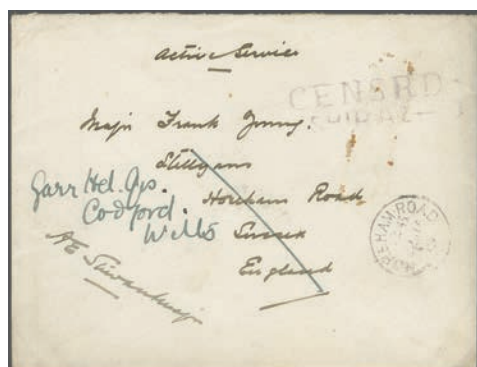 Active Service
CENSRD
Major Frank Young.
Horeham Road
Sussex
England
Garr Hd. Qrs.
Codford.
Wilts
HOREHAM ROAD